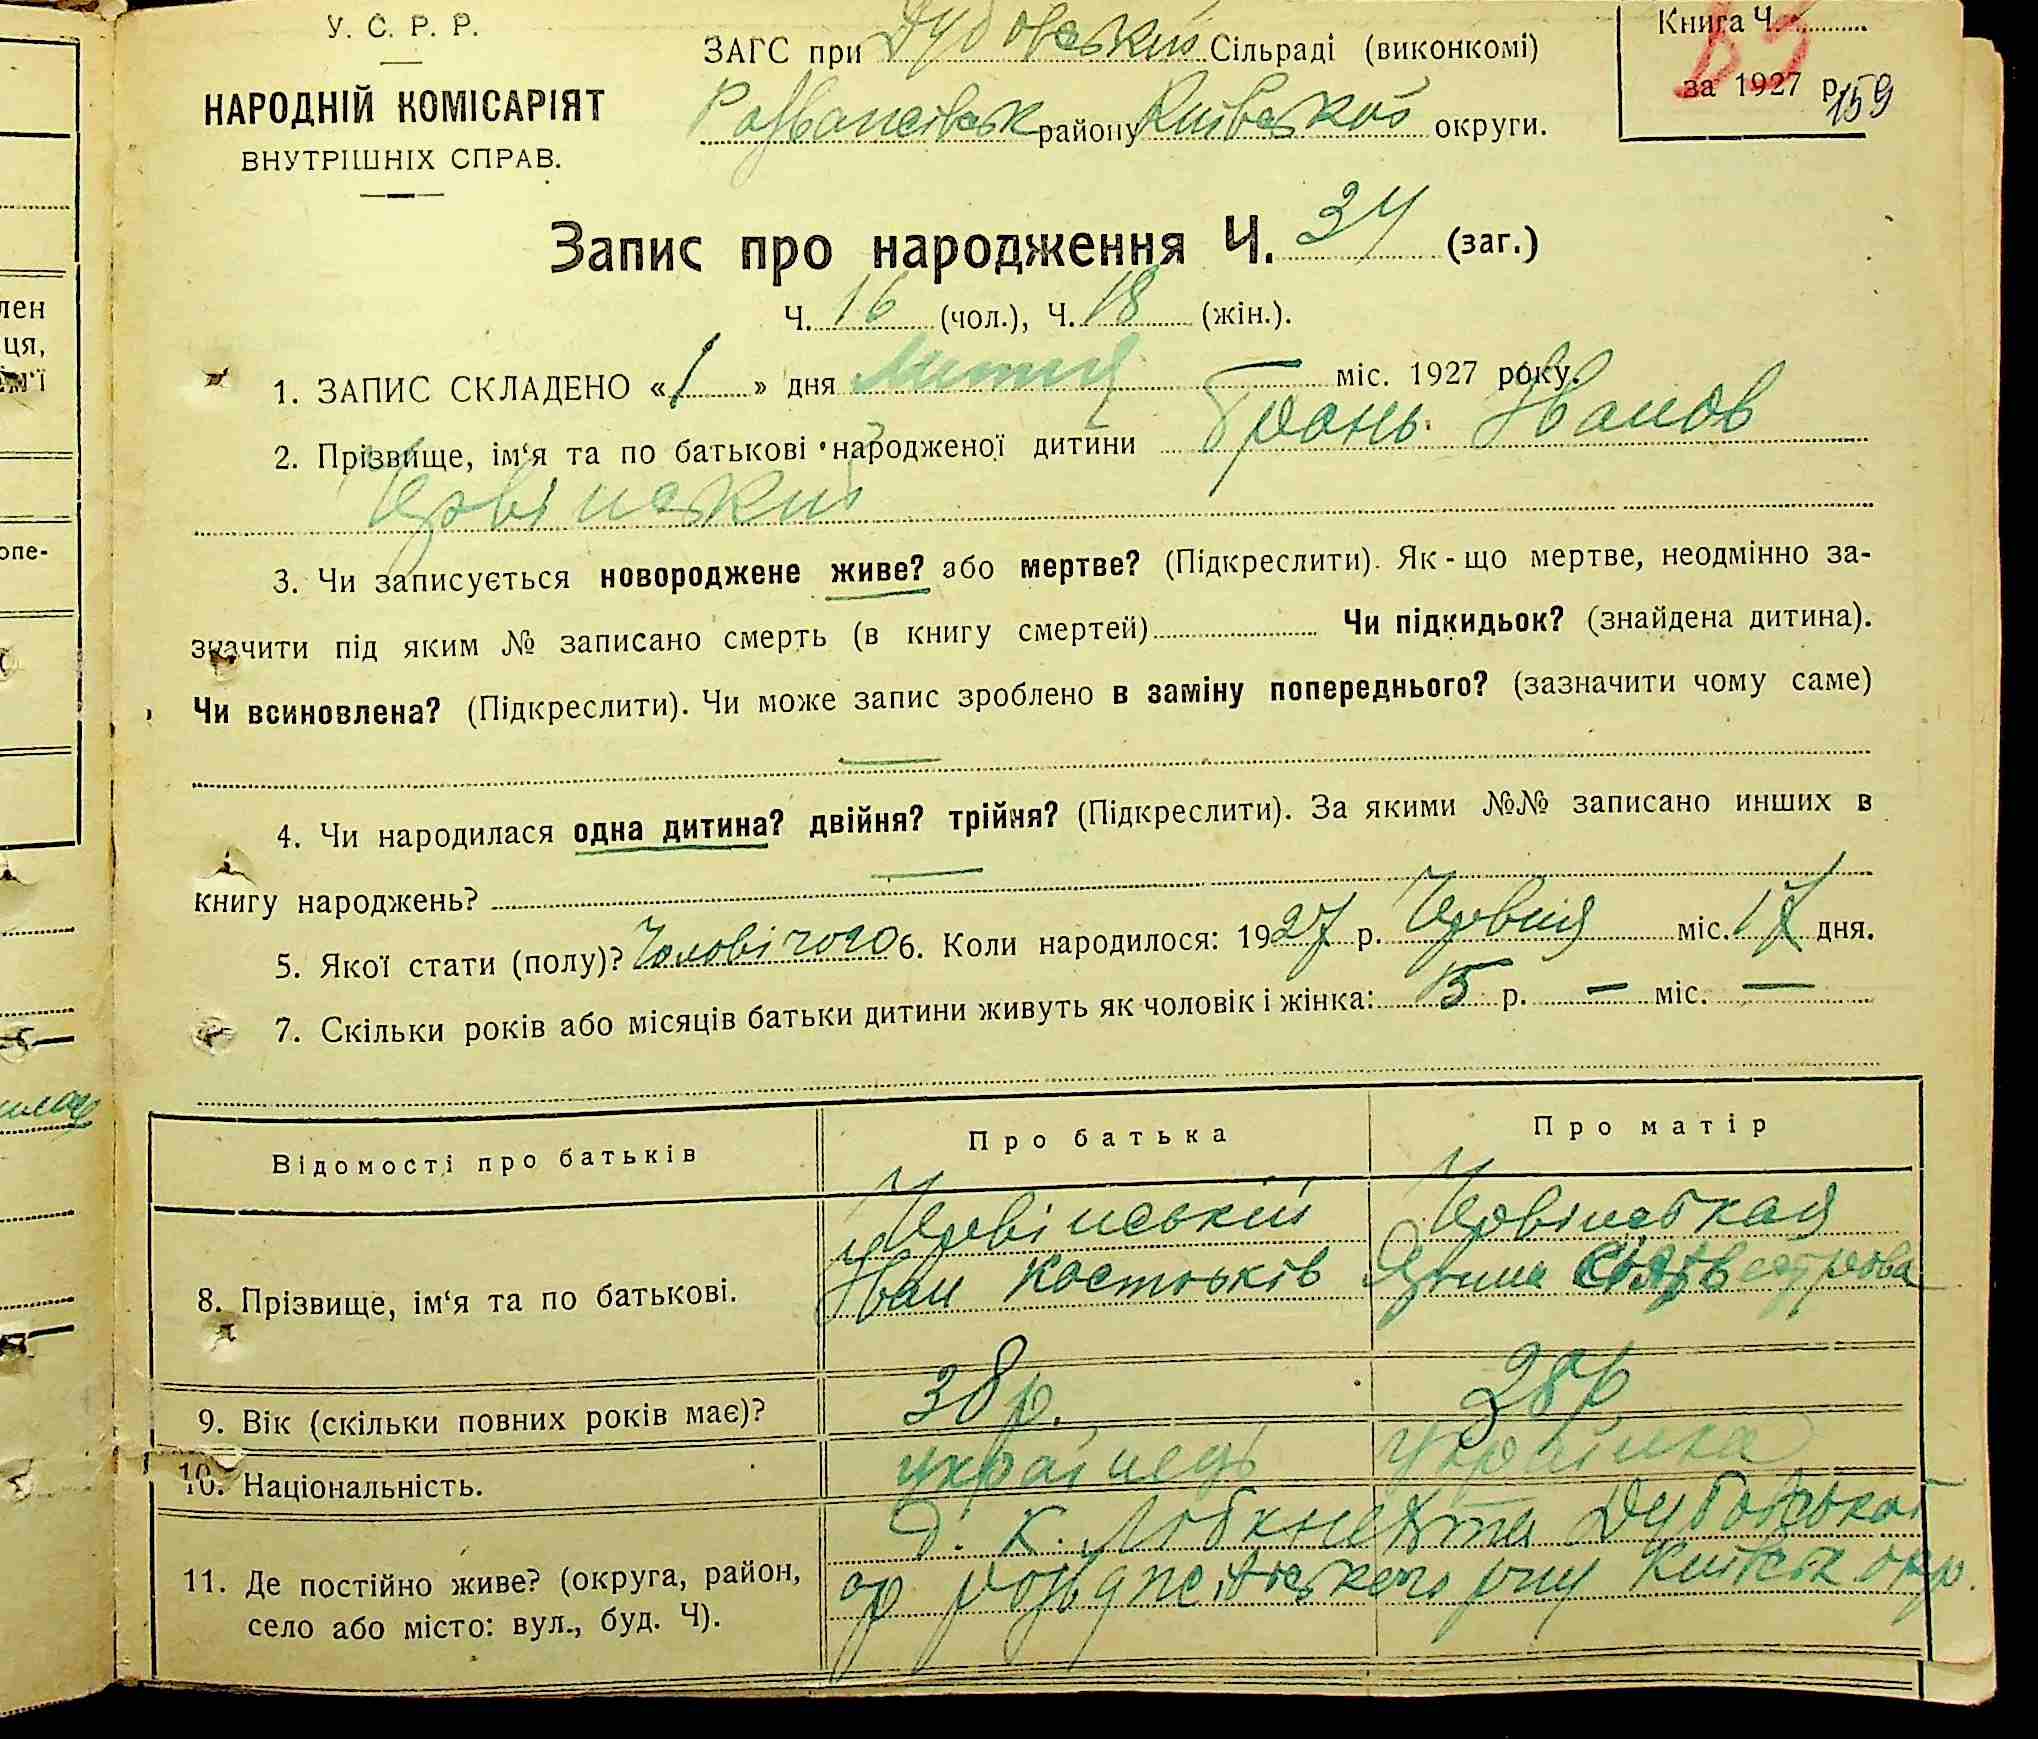 У. С. Р. Р.
НАРОДНІЙ КОМІСАРІЯТ
ВНУТРІШНІХ СПРАВ.
ЗАГС при Дубовський Сільраді (виконкомі)
району Київської округи.
Книга Ч.
за 1927 р.
159
Запис про народження Ч. 34 (заг.)
Ч. 16 (чол.), Ч. 18 (жін.).
1. ЗАПИС СКЛАДЕНО « 1 » дня Липня міс. 1927 року.
2. Прізвище, ім'я та по батькові народженої дитини Грань Іванов
Червінский
3. Чи записується новороджене живе? або мертве? (Підкреслити). Як - що мертве, неодмінно за-
значити під яким № записано смерть (в книгу смертей) Чи підкидьок? (знайдена дитина).
Чи всиновлена? (Підкреслити). Чи може запис зроблено в заміну попереднього? (зазначити чому саме)
—
4. Чи народилася одна дитина? двійня? трійня? (Підкреслити). За якими №№ записано инших в
книгу народжень? —
5. Якої стати (полу)? Чоловічого 6. Коли народилося: 1927 р. Червня міс. 17 дня.
7. Скільки років або місяців батьки дитини живуть як чоловік і жінка: 15 р. — міс. —
Відомості про батьків Про батька Про матір
Червінській Червінська
8. Прізвище, ім'я та по батькові. Іван Костьків
9. Вік (скільки повних років має)? 38 р. 28 р
10. Національність. українець Українка
11. Де постійно живе? (округа, район,
село або місто: вул., буд. Ч).
лен
ця,
ім'ї
опе-